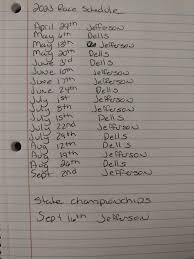 2023 Race Schedule
April 29th Jefferson
May 6th Dells
May 13th Jefferson
May 20th Dells
June 3rd Dells
June 10th Jefferson
June 17th Jefferson
June 24th Dells
July 1st Jefferson
July 8th Jefferson
July 15th Dells
July 22nd Jefferson
Aug Jefferson
Aug 12th Dells
Aug 19th Jefferson
Aug 26th Dells
Sept 2nd Jefferson
State championships
Sept 16th Jefferson